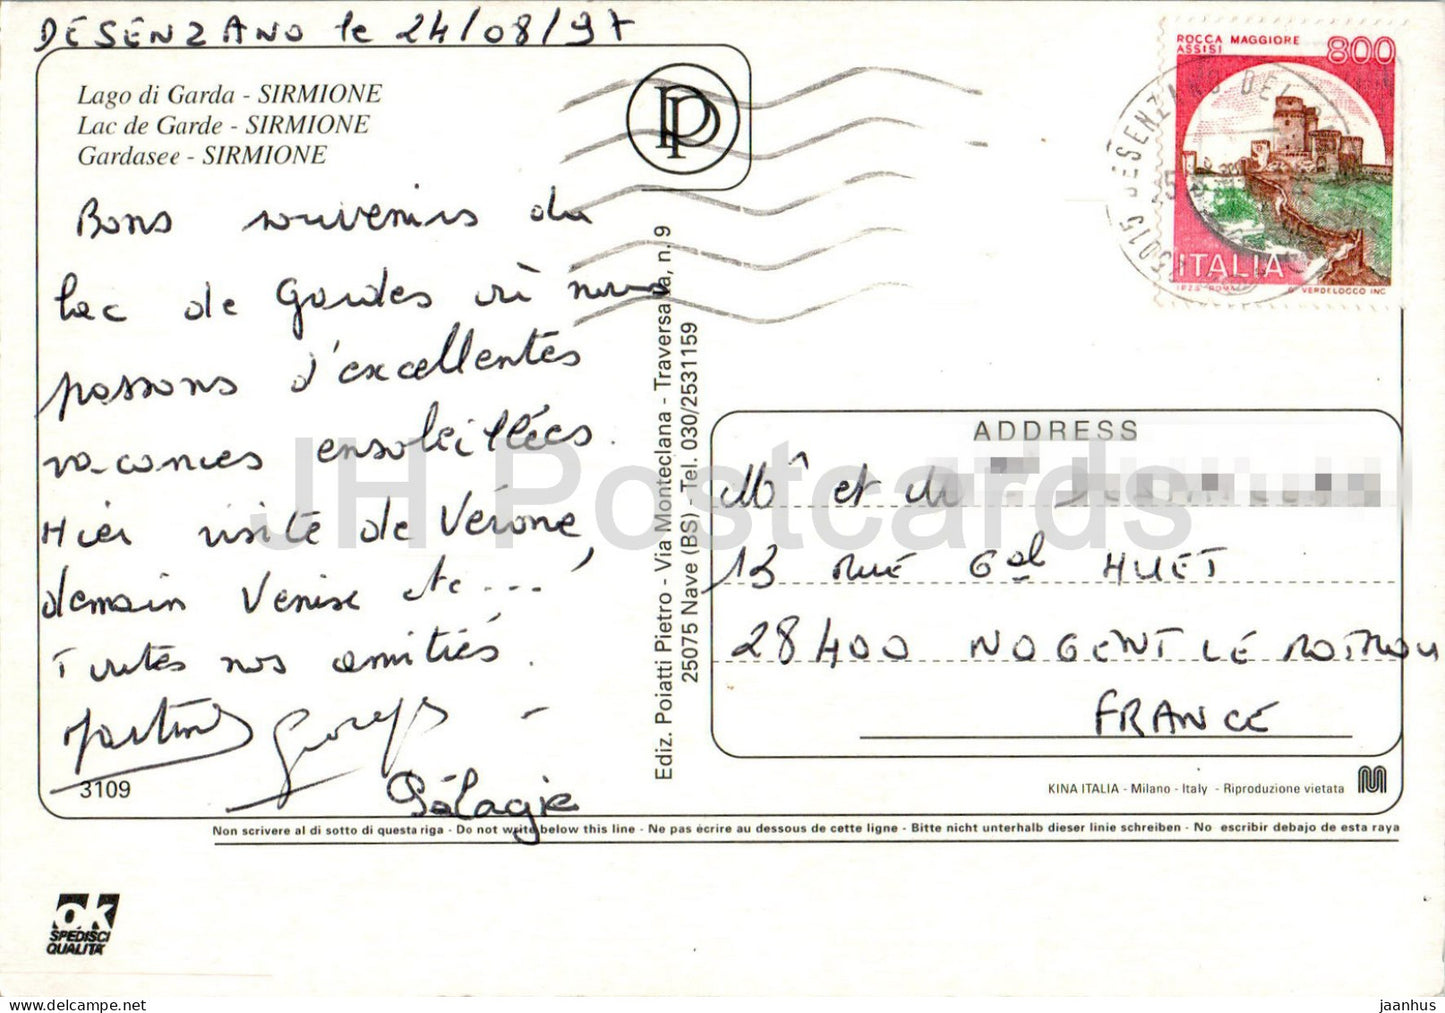 DESENZANO le 24/08/97
Lago di Garda - SIRMIONE
Lac de Garde - SIRMIONE
Gardasee - SIRMIONE
Bons souvenirs du
lac de Gardes où nous
passons d'excellentes
vacances ensoleillées.
Hier visite de Vérone,
demain Venise etc...
Toutes nos amitiés.
Martine Georges -
Pélagie
3109
Non scrivere al di sotto di questa riga - Do not write below this line - Ne pas écrire au dessous de cette ligne - Bitte nicht unterhalb dieser linie schreiben - No escribir debajo de esta raya
OK
SPEDISCI
QUALITA'
Ediz. Poiatti Pietro - Via Monteclana - Traversa IIa, n. 9
25075 Nave (BS) - Tel. 030/2531159
ROCCA MAGGIORE
ASSISI
800
ITALIA
I.P.Z.S. ROMA
VERDELOCCO INC.
DESENZANO DEL
ADDRESS
Mr et
13 RUE Gal HUET
28400 NOGENT LE ROTROU
FRANCE
KINA ITALIA - Milano - Italy - Riproduzione vietata
JH Postcards
www.delcampe.net
jaanhus